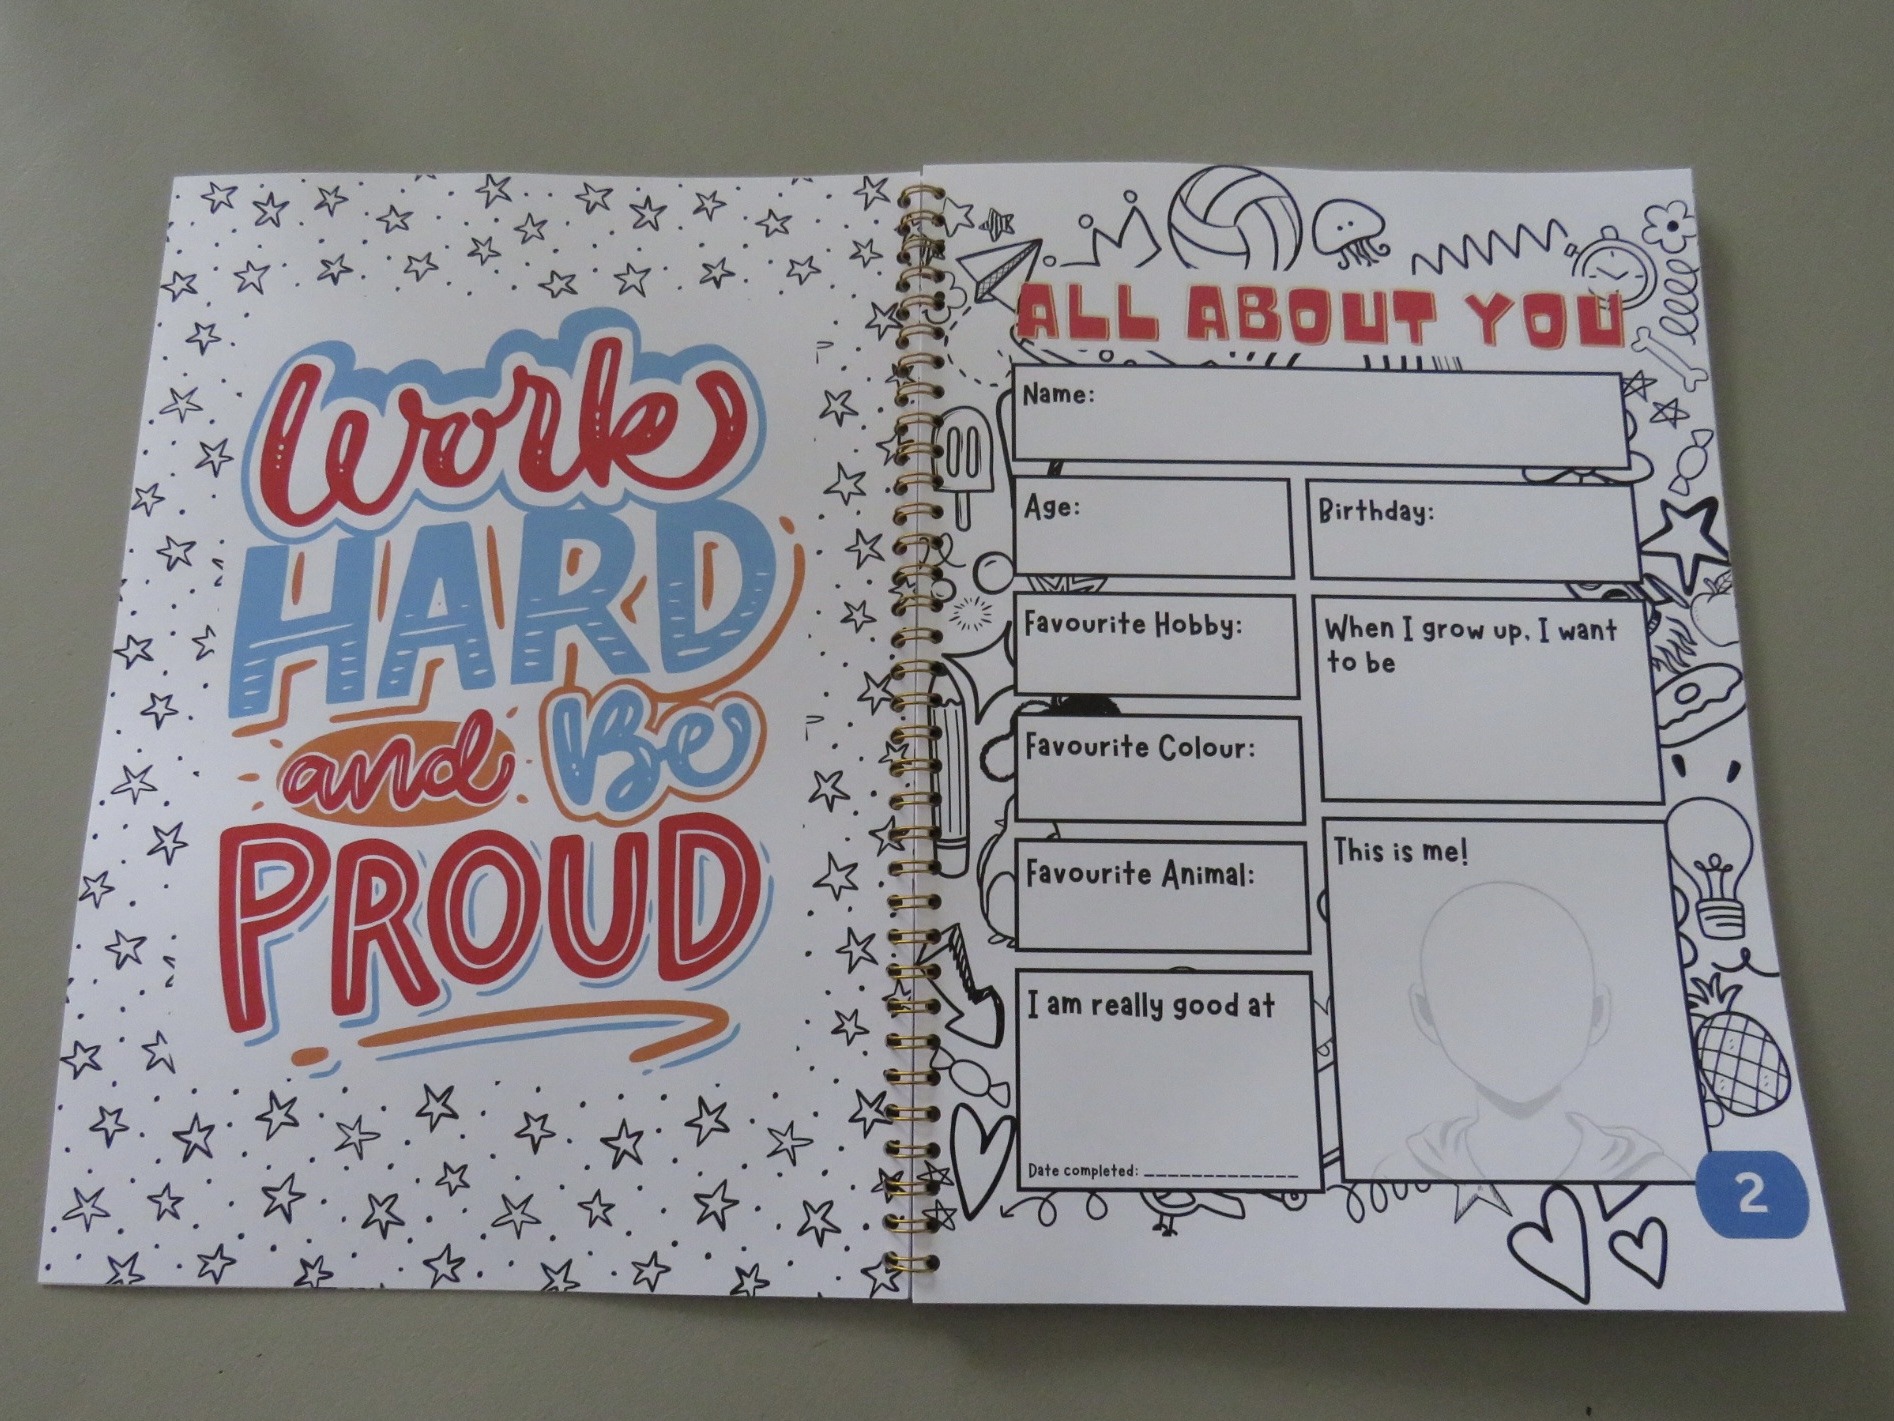 Work
HARD
and Be
PROUD
ALL ABOUT YOU
Name:
Age:
Birthday:
Favourite Hobby:
When I grow up, I want
to be
Favourite Colour:
Favourite Animal:
This is me!
I am really good at
Date completed: _______________
2